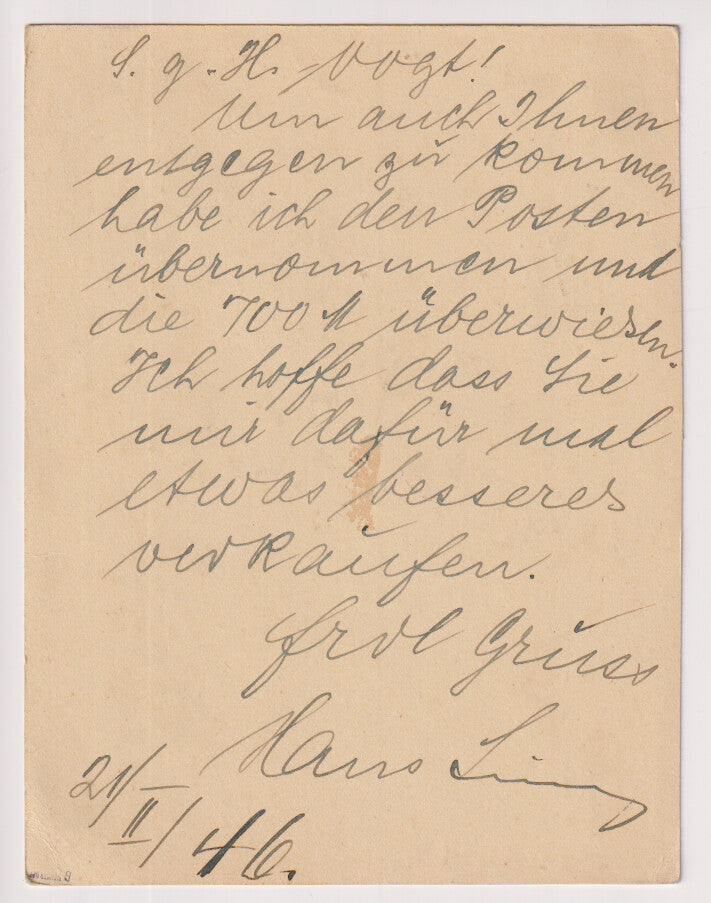 S. g. H. Vogt!
Um auch Ihnen
entgegen zu kommen
habe ich den Posten
übernommen und
die 700 M überwiesen.
Ich hoffe dass Sie
mir dafür mal
etwas besseres
verkaufen.
frdl Gruss
Hans
21/II/46.